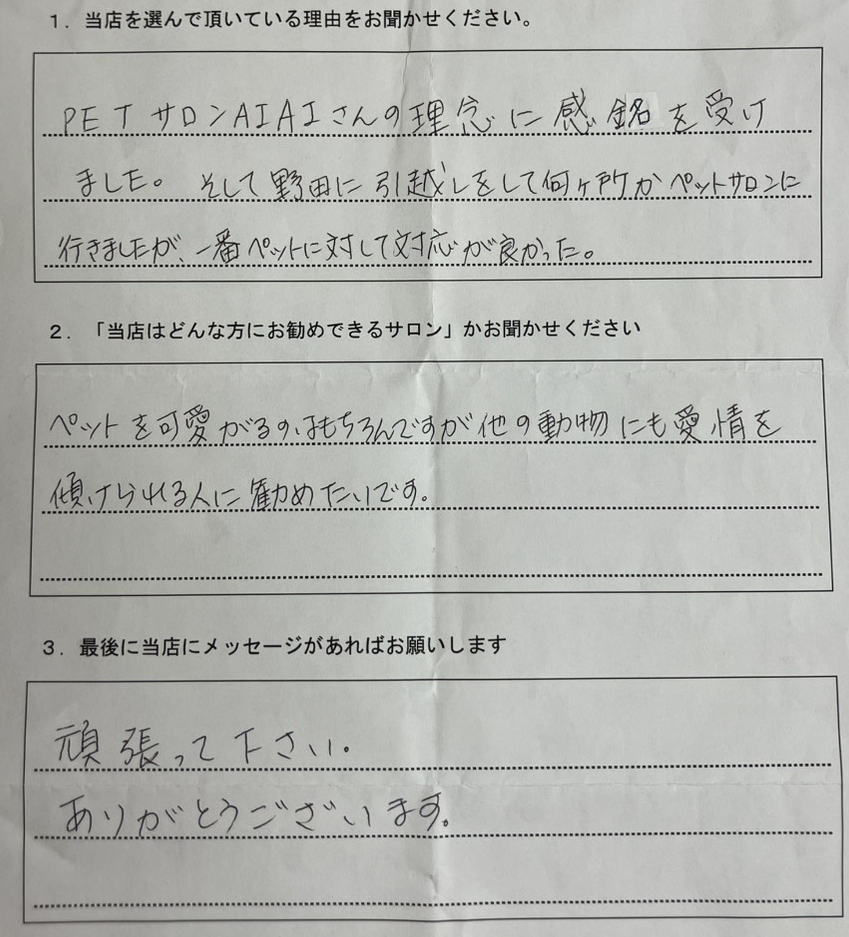 1．当店を選んで頂いている理由をお聞かせください。
PETサロンAIAIさんの理念に感銘を受け
ました。そして野田に引越しをして何ヶ所かペットサロンに
行きましたが、一番ペットに対して対応が良かった。
2．「当店はどんな方にお勧めできるサロン」かお聞かせください
ペットを可愛がるのはもちろんですが他の動物にも愛情を
傾けられる人に勧めたいです。
3．最後に当店にメッセージがあればお願いします
頑張って下さい。
ありがとうございます。